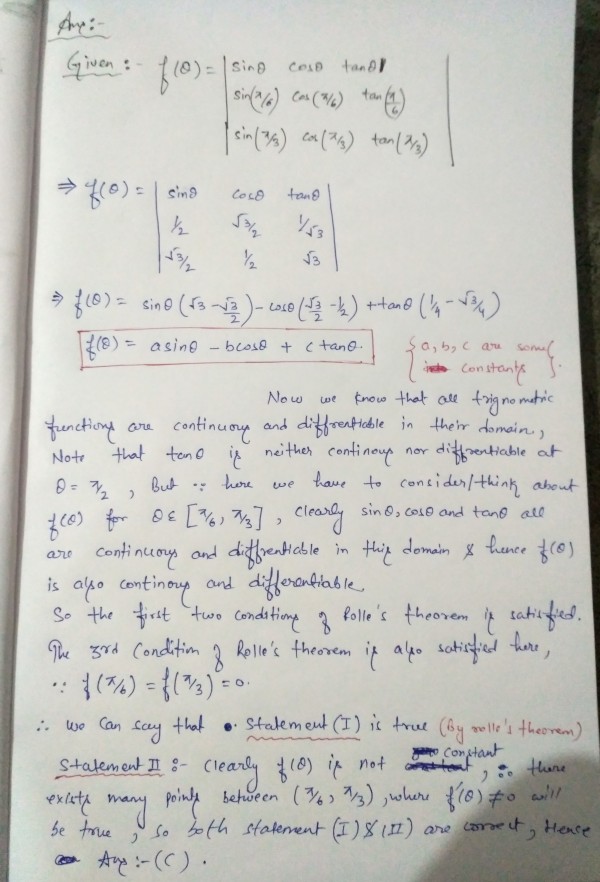 Ans:-
Given:- f(θ) = | sinθ cosθ tanθ |
sin(π/6) cos(π/6) tan(π/6)
sin(π/3) cos(π/3) tan(π/3)
⇒ f(θ) = | sinθ cosθ tanθ |
1/2 √3/2 1/√3
√3/2 1/2 √3
⇒ f(θ) = sinθ (√3 - √3/2) - cosθ (√3/2 - 1/2) + tanθ (1/4 - √3/4)
f(θ) = asinθ - bcosθ + c tanθ. { a, b, c are some
constants }.
Now we know that all trignometric
functions are continuous and diffrentiable in their domain,
Note that tanθ is neither continous nor diffrentiable at
θ = π/2, But ∵ here we have to consider/think about
f(θ) for θ ε [π/6, π/3], clearly sinθ, cosθ and tanθ all
are continuous and diffrentiable in this domain & hence f(θ)
is also continous and differentiable
So the first two conditions of Rolle's theorem is satisfied.
The 3rd Condition of Rolle's theorem is also satisfied here,
∵ f(π/6) = f(π/3) = 0.
∴ we can say that Statement (I) is true (By rolle's theorem)
Statement II :- Clearly f(θ) is not constant, ∴ there
exists many points between (π/6, π/3), where f'(θ) ≠ 0 will
be true, so both statement (I) & (II) are correct, Hence
Ans:- (C).